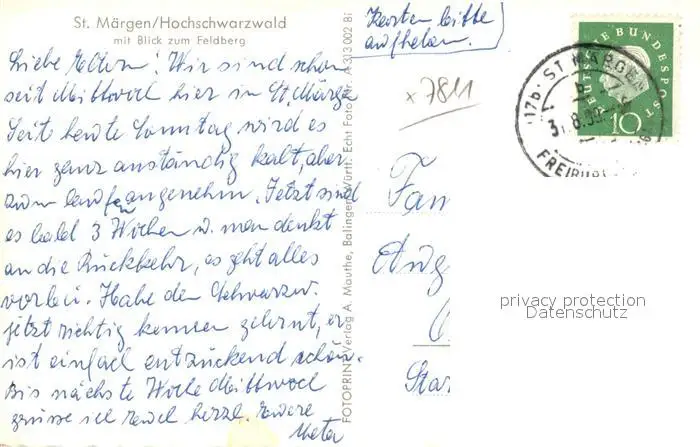 St. Märgen/Hochschwarzwald
mit Blick zum Feldberg
Liebe Eltern! Wir sind schon
seit Mittwoch hier in St. Märgen
Seit heute Sonntag wird es
hier ganz anständig kalt, aber
zum laufen angenehm. Jetzt sind
es bald 3 Wochen u. man denkt
an die Rückkehr, es geht alles
vorbei. Habe den Schwarzw.
jetzt richtig kennen gelernt, er
ist einfach entzückend schön.
Bis nächste Woche Mittwoch
grüsse ich herzl. Eure
Meta
FOTOPRINT Verlag A. Mauthe, Balingen Württ. Echt Foto A 3/3 002 Bi
Karten bitte
aufheben.
x 7811
DEUTSCHE BUNDESPOST
10
(17b) ST. MÄRGEN
FREIBURG
Fam
privacy protection
Datenschutz